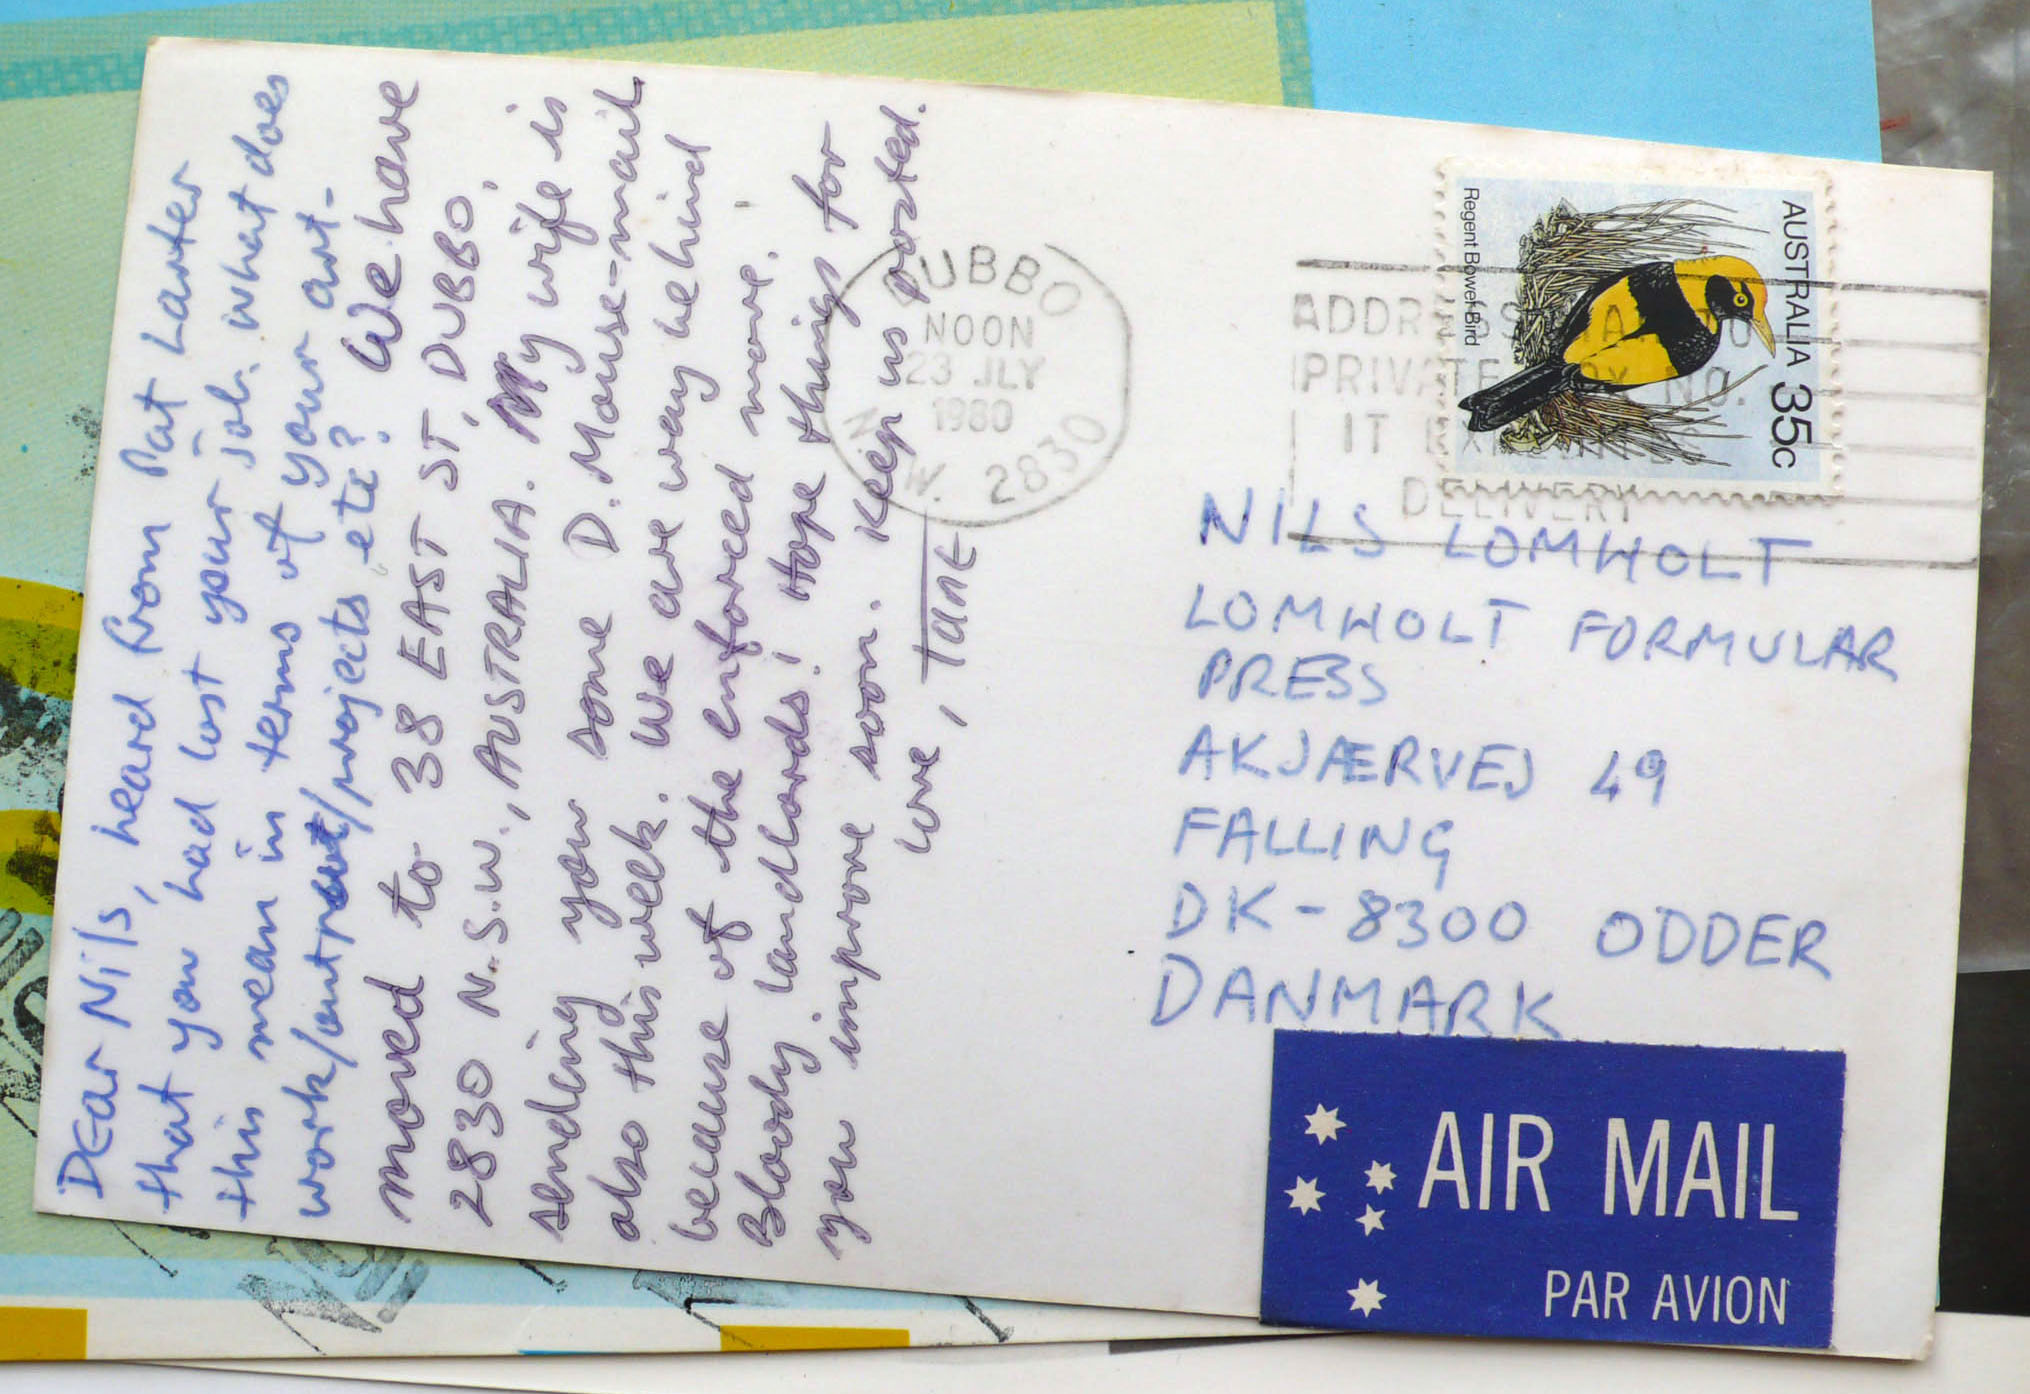 DEar Nils, heard from Pat Larter
that you had lost your job. what does
this mean in terms of your art-
work/output/projects, etc? We have
moved to 38 EAST ST, DUBBO,
2830 N.S.W., AUSTRALIA. My wife is
sending you some D. Mouse-mail
also this week. We are way behind
because of the enforced move.
Bloody landlords! Hope things for
you improve soon. Keep us posted.
love, TANE
DUBBO
NOON
23 JLY
1980
N. W. 2830
ADDRESS MAIL TO
PRIVATE BOX NO.
IT EXPEDITES
DELIVERY
AUSTRALIA 35c
Regent Bower-Bird
NILS LOMHOLT
LOMHOLT FORMULAR
PRESS
AKJÆRVEJ 49
FALLING
DK-8300 ODDER
DANMARK
AIR MAIL
PAR AVION